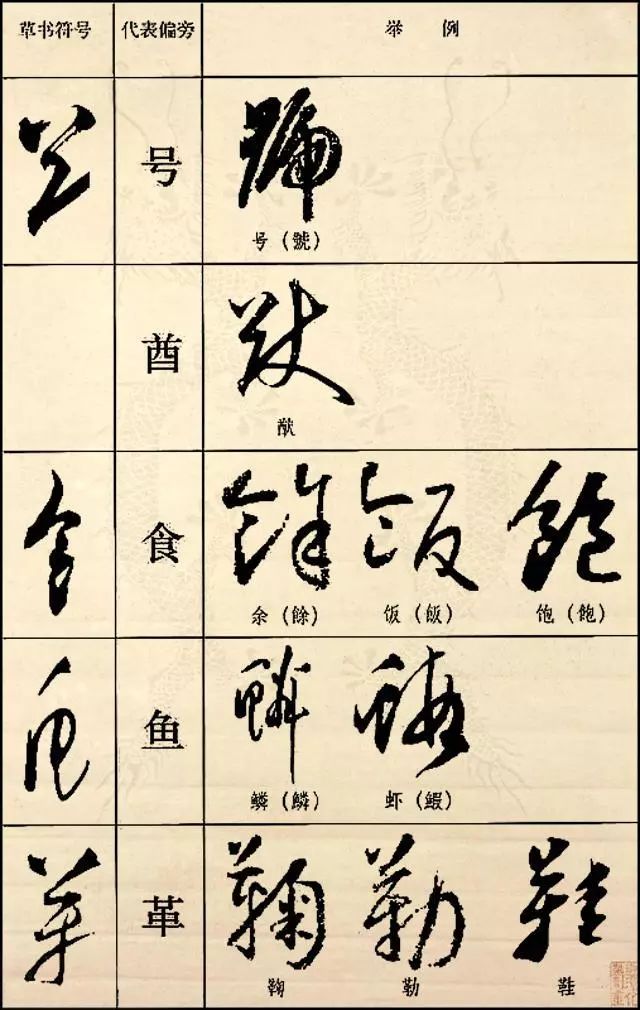 草书符号 代表偏旁 举例
号
号（號）
酋
猷
食
余（餘） 饭（飯） 饱（飽）
鱼
鳞（鱗） 虾（鰕）
革
鞠 勒 鞋